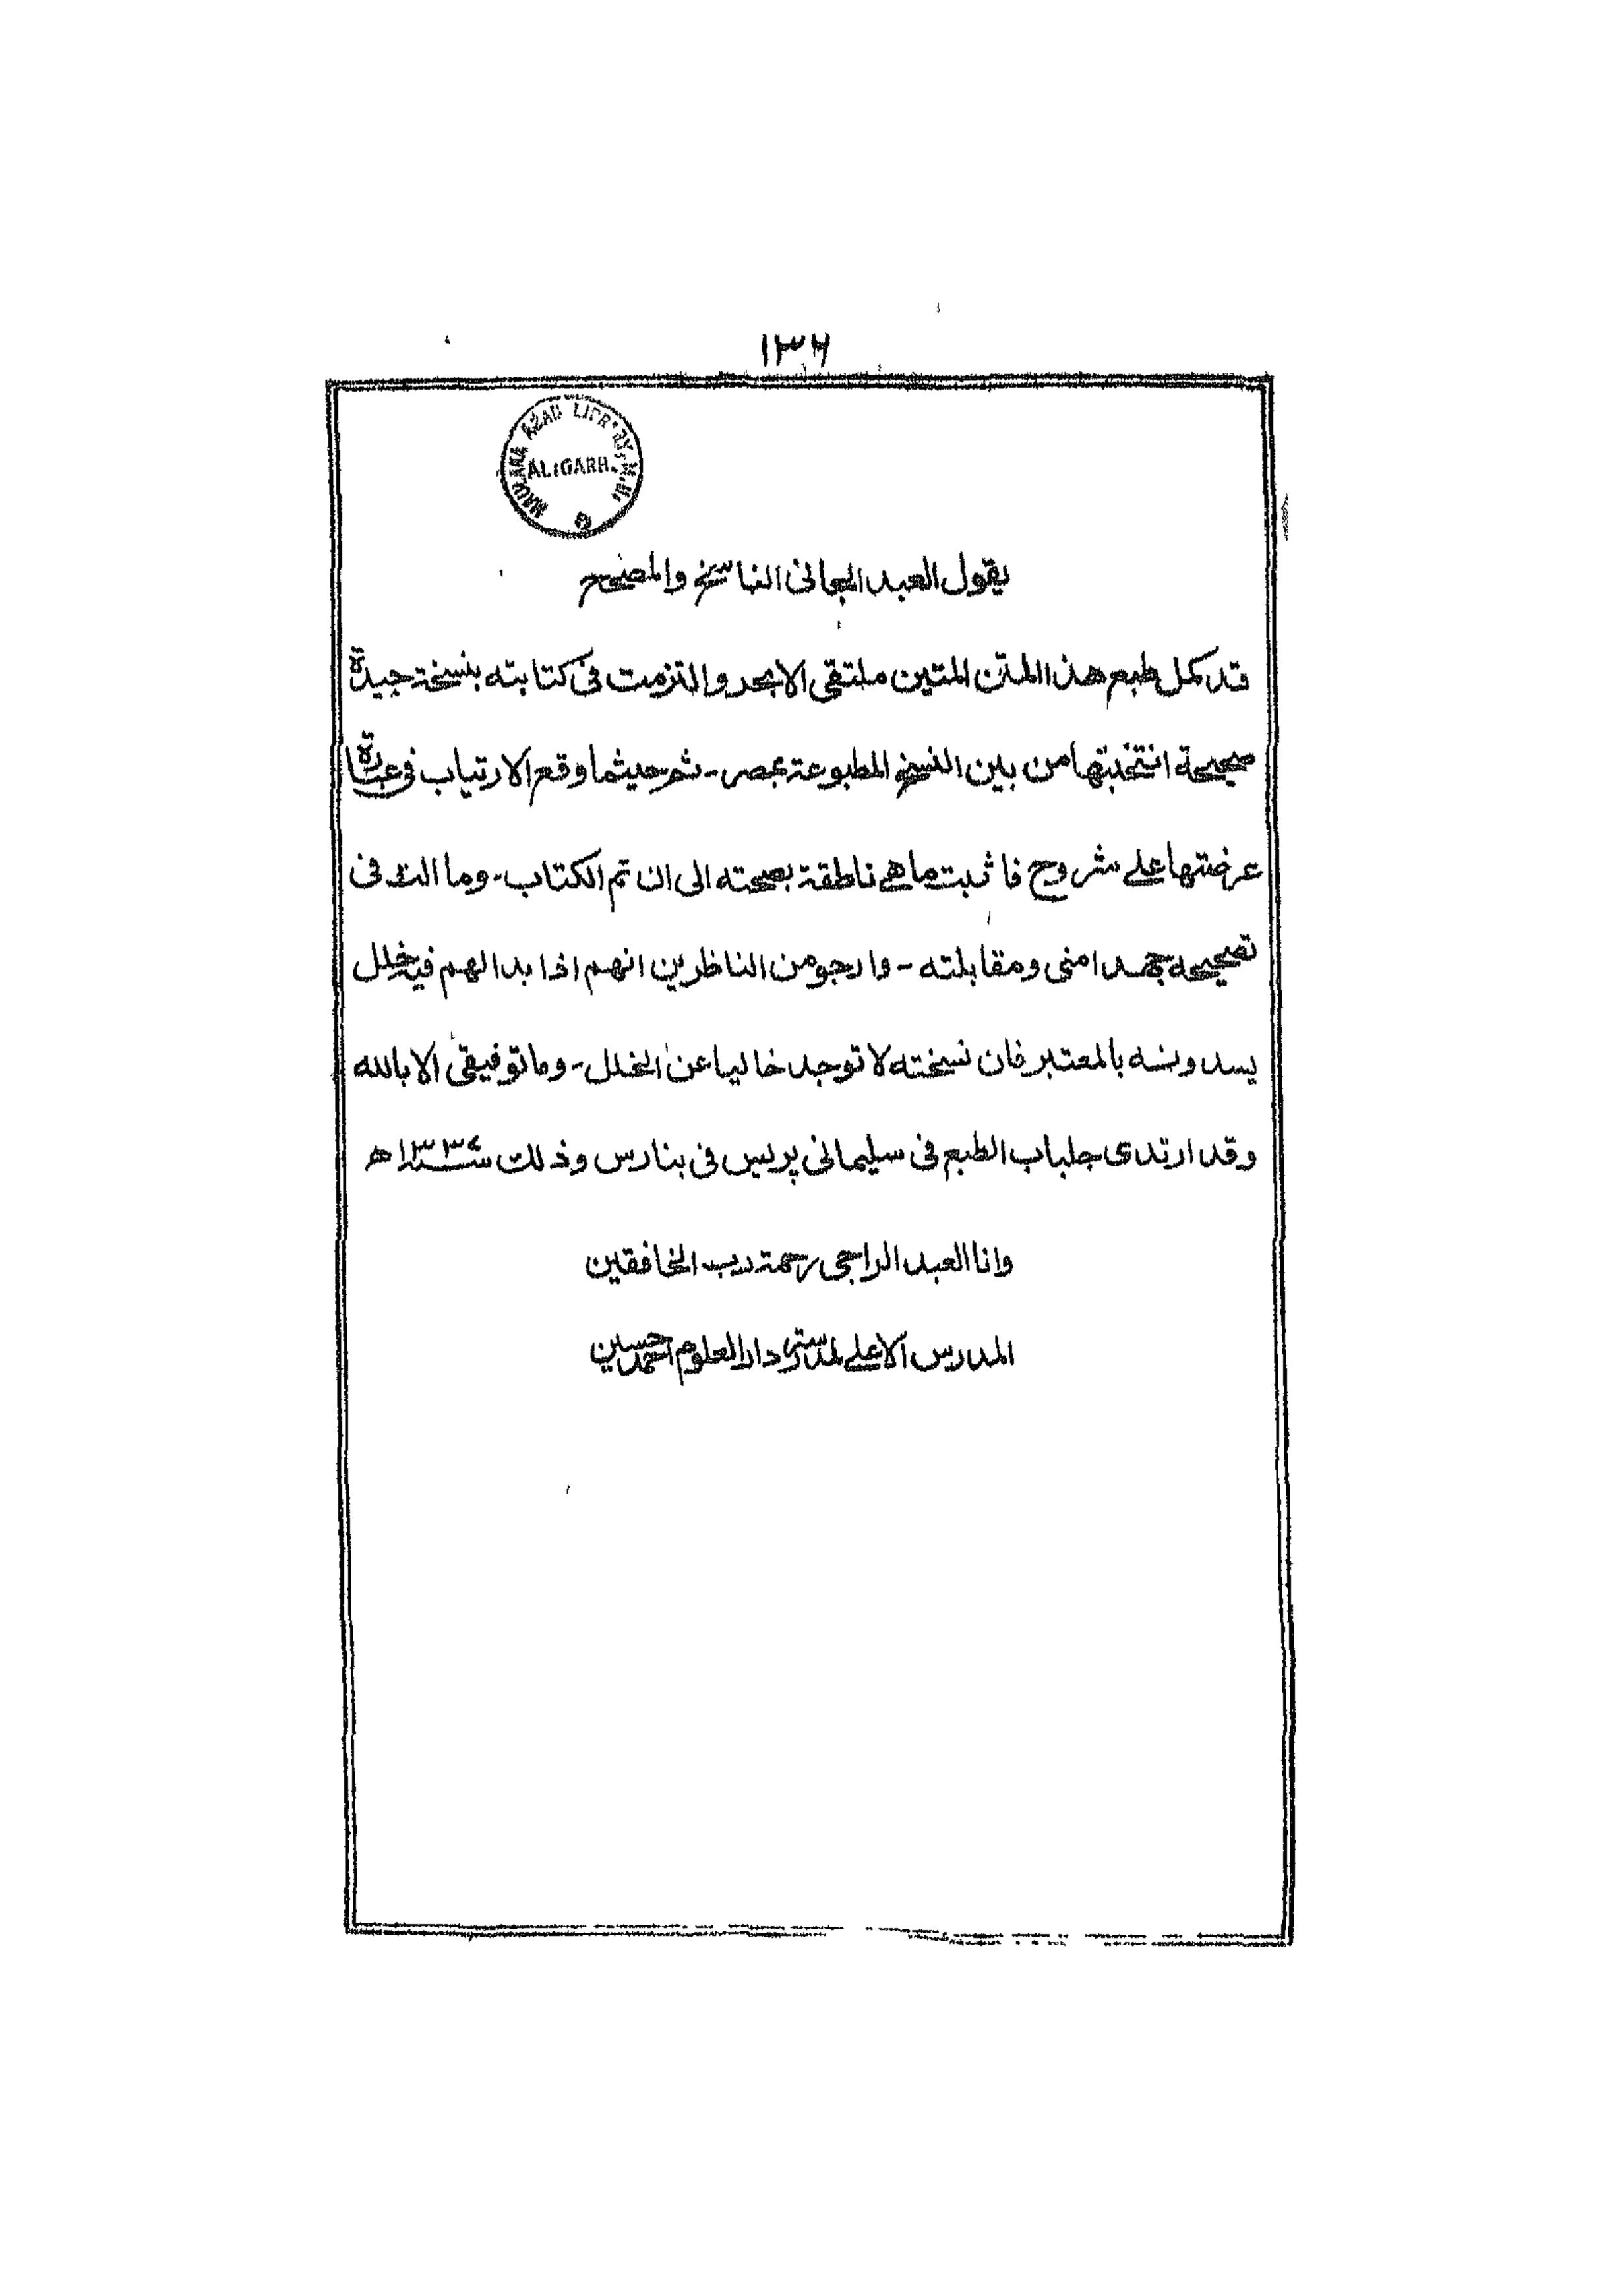 ۱۳۶
MAULANA AZAD LIBRARY, A.M.U.
ALIGARH.
يقول العبد الجانى الناسخ والمصحح
قد كمل طبع هذا المتن المتين ملتقى الابحر والتزمت فى كتابته بنسخة جيدة
صحيحة انتخبتها من بين النسخ المطبوعة بمصر - ثم حيثما وقع الارتياب فى عبارة
عرضتها على شروح فاثبت ما هى ناطقة بصحته الى ان تم الكتاب - وما الت فى
تصحيحه جهدا منى ومقابلته - وارجو من الناظرين انهم اذا بدا لهم فيه خلل
يسدونه بالمعتبر فان نسخته لا توجد خاليا عن الخلل - وما توفيقى الا بالله
وقد ارتدى جلباب الطبع فى سليمانى پريس فى بنارس وذلك سنه ه
وانا العبد الراجى رحمة رب الخافقين
المدرس الاعلى لمدرسة دار العلوم احمد حسين